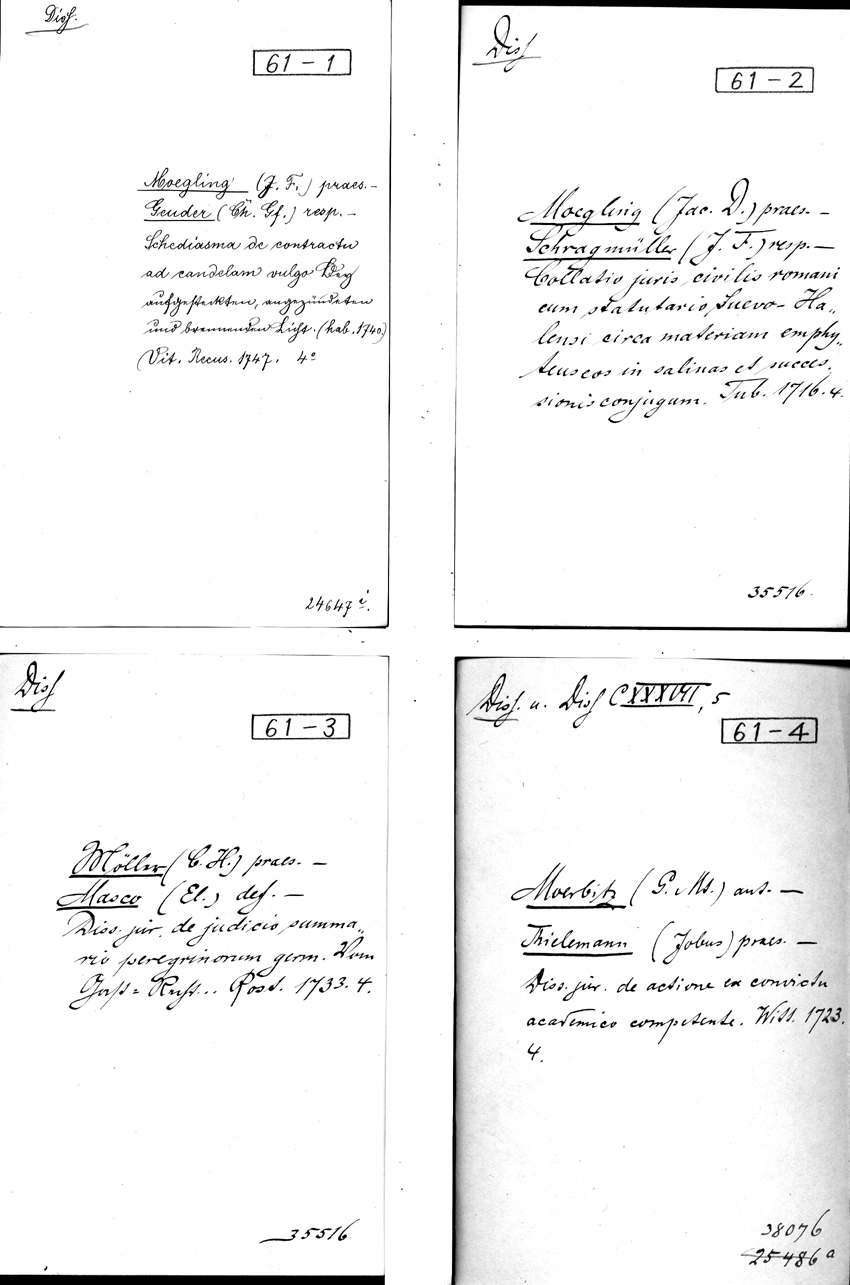 Diss.
61 - 1
Moegling (J. F.) praes. -
Geuder (Ch. Gf.) resp. -
Schediasma de contractu
ad candelam vulgo Bey
aufgesteckten, angezündeten
und brennenden Licht. (hab. 1740)
(Vit. Recus. 1747. 4°
24647 i.
Diss
61 - 2
Moegling (Jac. D.) praes. -
Schragmüller (J. F.) resp. -
Collatio juris civilis romani
cum statutario, Suevo-Ha„
lensi circa materiam emphy„
teuseos in salinas et succes„
sionis conjugum. Tub. 1716. 4.
35516.
Diss
61 - 3
Möller (C. H.) praes. -
Masco (El.) def. -
Diss. jur. de judicio summa„
rio peregrinorum germ. Vom
Gast=Recht... Rost. 1733. 4.
35516.
Diss. u. Diss CXXXVII, 5
61 - 4
Moerbitz (G. Ms.) aut. -
Thielemann (Jobus) praes. -
Diss. jur. de actione ex convictu
academico competente. Witt. 1723.
4.
38076
25486 a